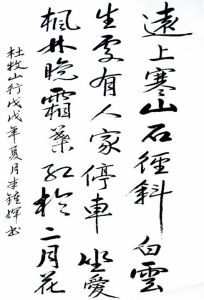 遠上寒山石徑斜白雲
生處有人家停車坐愛
楓林晚霜葉紅於二月花
杜牧山行戊戌年夏月李鍾輝书